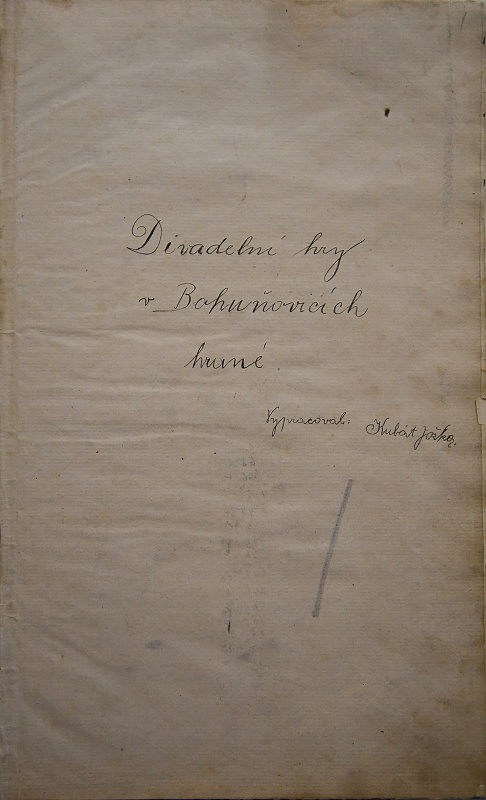 Divadelní hry
v Bohuňovicích
hrané.
Vypracoval: Kubát Jožka.